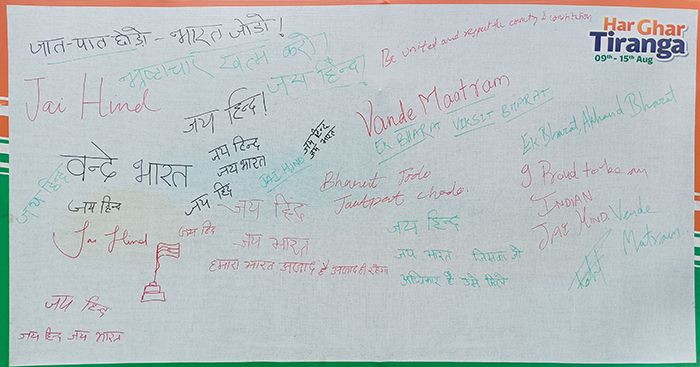 जात-पात छोडो - भारत जोडो !
Be united and respect the country & constitution
Har Ghar
Tiranga
09th - 15th Aug
भ्रष्टाचार खत्म करो
Jai Hind
जय हिन्द!
जय हिन्द!
Vande Maatram
Ek BHARAT VIKSIT BHARAT
Ek Bharat, Akhand Bharat
वन्दे भारत
जय हिन्द
जय भारत
JAI HIND
जय हिन्द
जय भारत
जय हिंद
जय हिन्द
Bharat Jodo
Jautpart chodo.
I Proud to be an
INDIAN
JAI HIND
Vande
Matram
जय हिन्द
जय हिंद
Jai Hind
जय हिंद
जय भारत
हमारा भारत आजाद है
जय हिंद
जय भारत जिसका जो
अधिकार है उसे मिले
जय हिन्द
जय हिन्द जय भारत